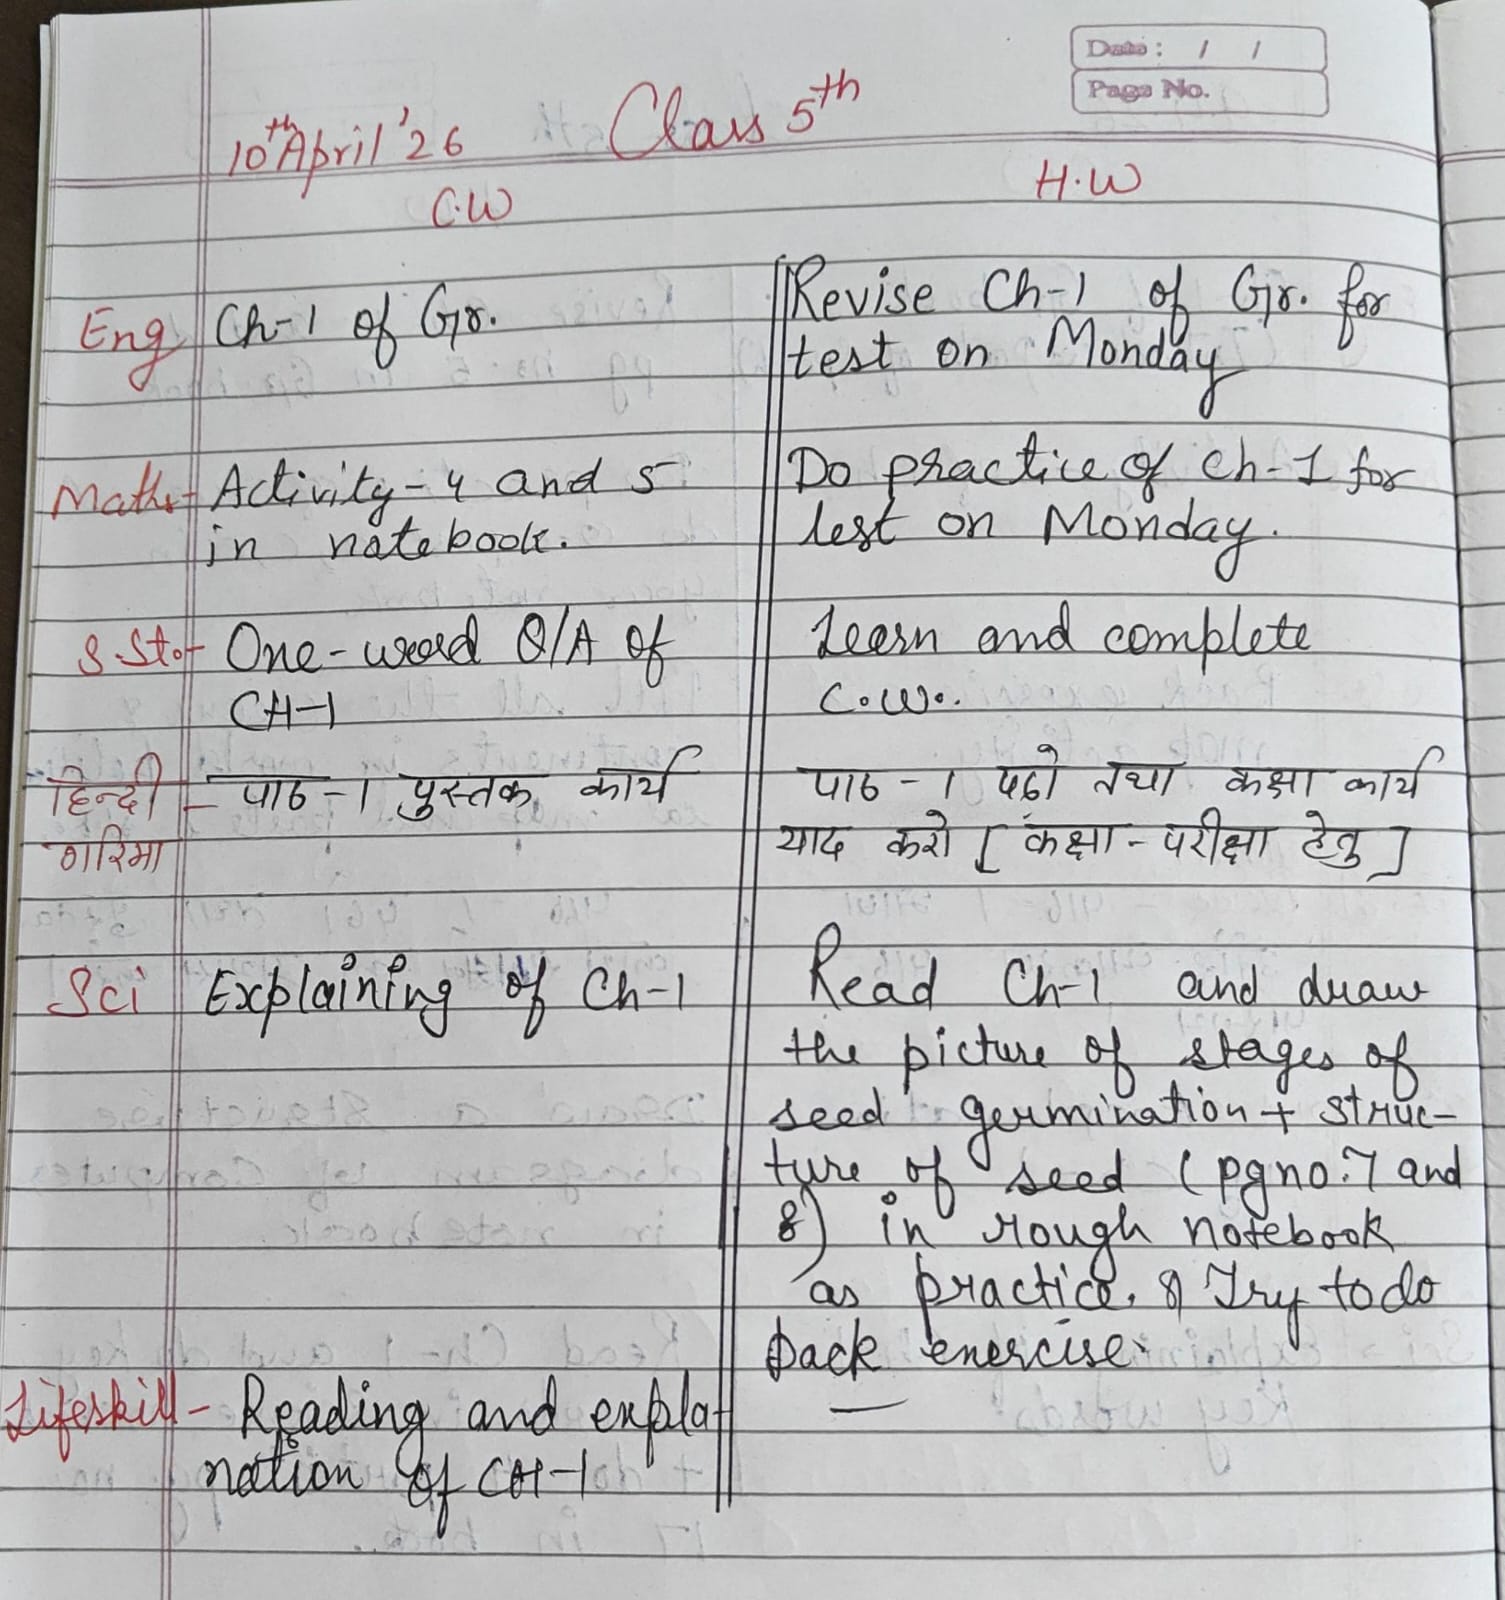 Date : / /
Page No.
10th April '26 Class 5th
C.W H.W
Eng Ch-1 of Gr. Revise Ch-1 of Gr. for
test on Monday
Maths- Activity-4 and 5 Do practice of Ch-1 for
in notebook. test on Monday.
S.St.- One-word Q/A of Learn and complete
CH-1 C.W..
हिन्दी - पाठ-1 पुस्तक कार्य पाठ-1 पढ़ो तथा कक्षा कार्य
गरिमा याद करो [कक्षा-परीक्षा हेतु]
Sci Explaining of Ch-1 Read Ch-1 and draw
the picture of stages of
seed germination + struc-
ture of seed (pg no:7 and
8) in rough notebook
as practice. & Try to do
back exercise.
Lifeskill- Reading and expla- —
nation of CH-1